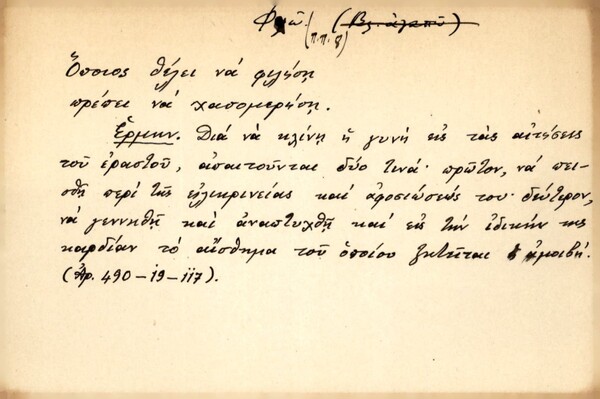 Φιλῶ. (Βλ. ἀγαπῶ)
(π.π. 8)
Ὅποιος θέλει νά φιλήσῃ
πρέπει νά χασομερήσῃ.
Ἑρμην. Διά νά κλίνῃ ἡ γυνή εἰς τάς αἰτήσεις
τοῦ ἐραστοῦ, ἀπαιτοῦνται δύο τινά· πρῶτον, νά πει-
σθῇ περί τῆς εἰλικρινείας καί ἀφοσιώσεώς του· δεύτερον,
νά γεννηθῇ καί ἀναπτυχθῇ καί εἰς τήν ἰδικήν της
καρδίαν τό αἴσθημα τοῦ ὁποίου ζητεῖται ἡ ἀμοιβή.
(Ἀρ. 490-19-117).